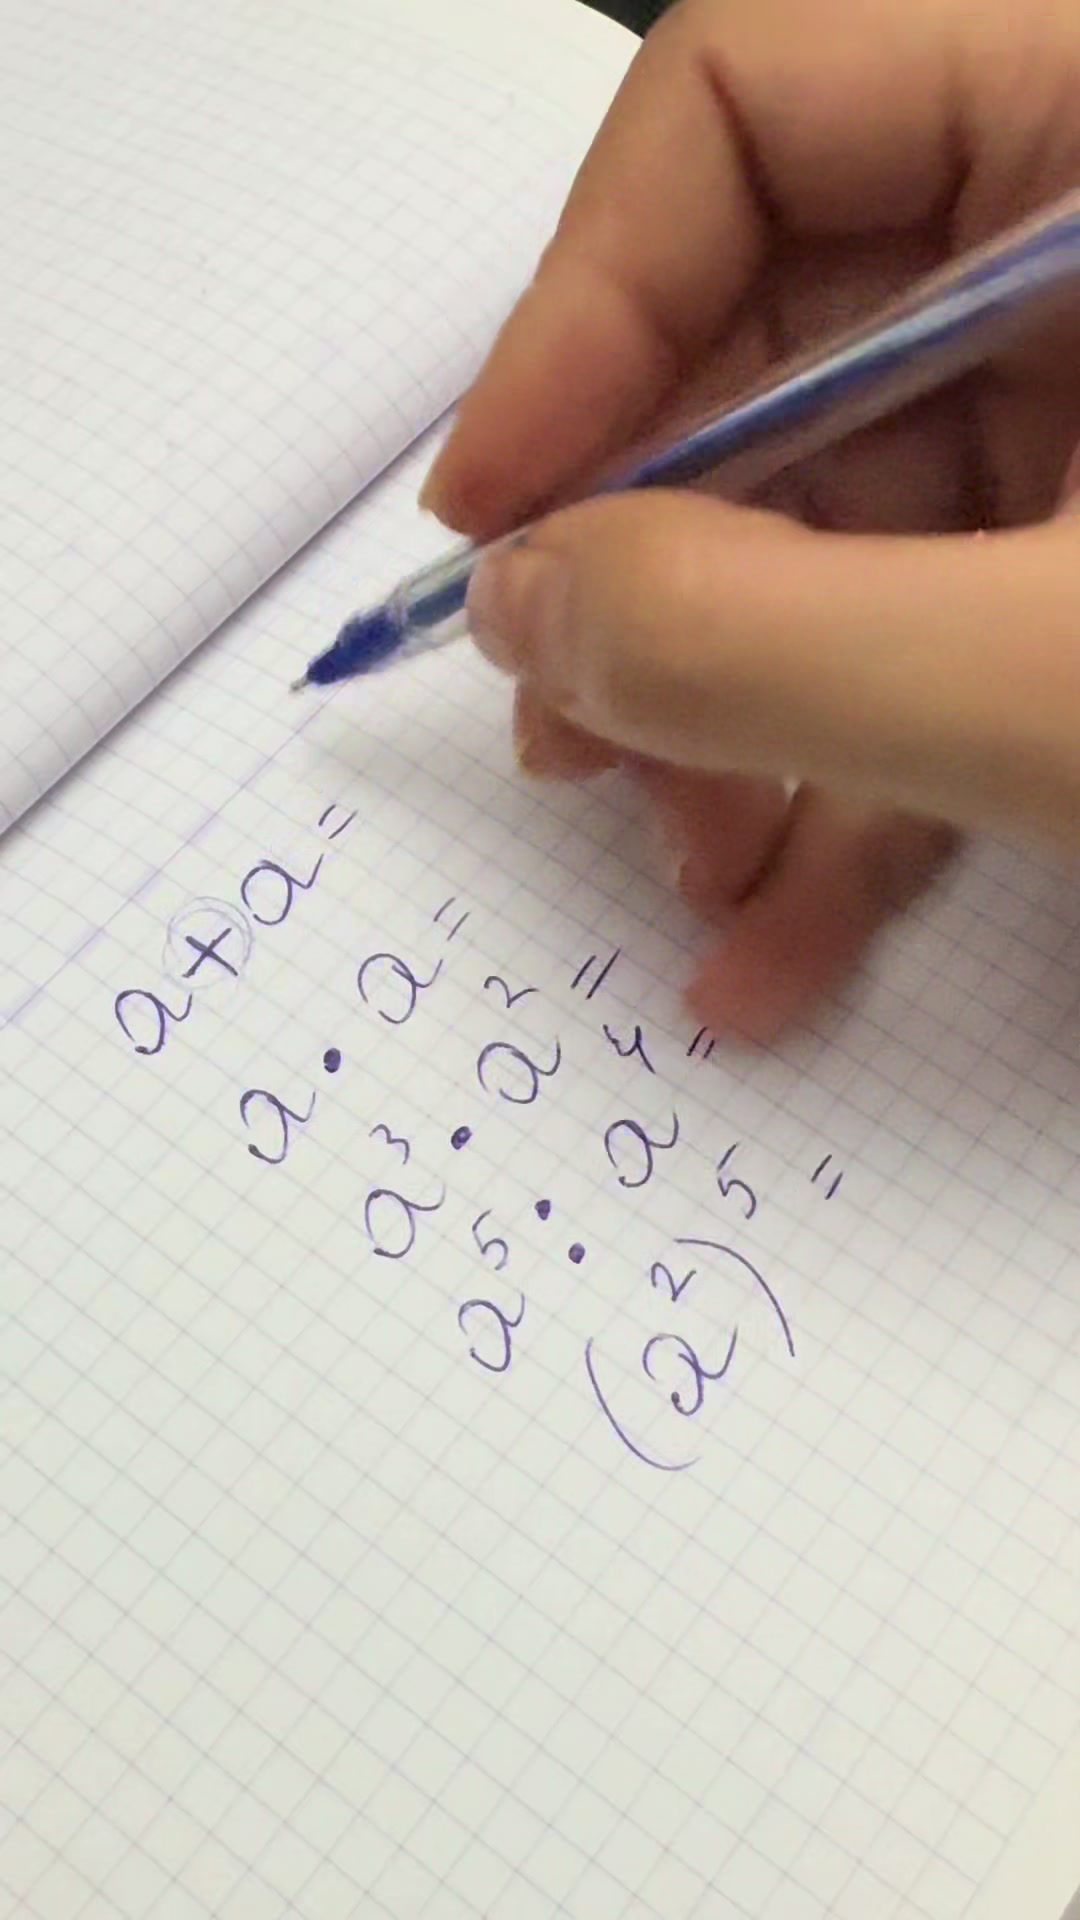 a+a=
a·a=
a³·a²=
a⁵:a⁴=
(a²)⁵=